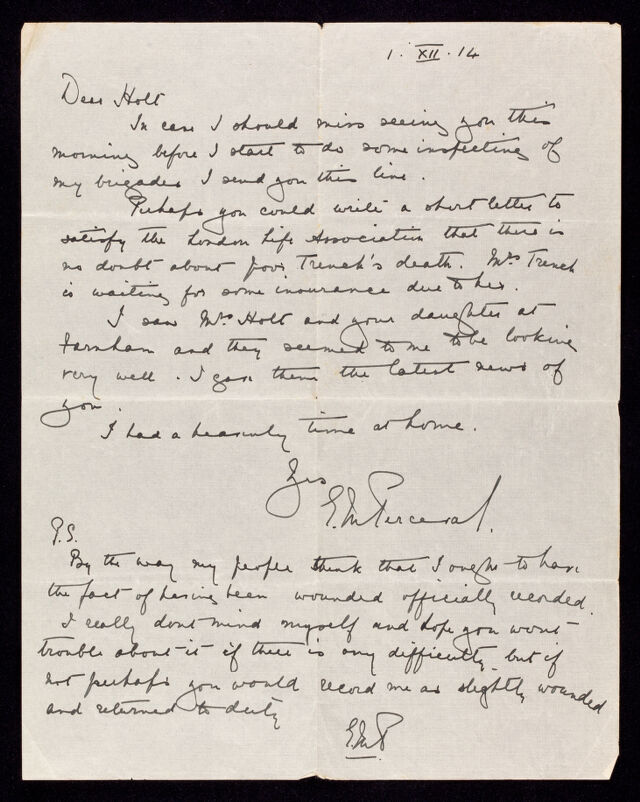 1. XII. 14
Dear Holt
In case I should miss seeing you this
morning before I start to do some inspecting of
my brigades I send you this line.
Perhaps you could write a short letter to
satisfy the London Life Association that there is
no doubt about poor Trench's death. Mrs Trench
is waiting for some insurance due to her.
I saw Mrs Holt and your daughter at
Farnham and they seemed to me to be looking
very well. I gave them the latest news of
you.
I had a heavenly time at home.
Yrs
E.M Perceval.
P.S.
By the way my people think that I ought to have
the fact of having been wounded officially recorded.
I really dont mind myself and hope you wont
trouble about it if there is any difficulty - but if
not perhaps you would record me as slightly wounded
and returned to duty
E.M.P